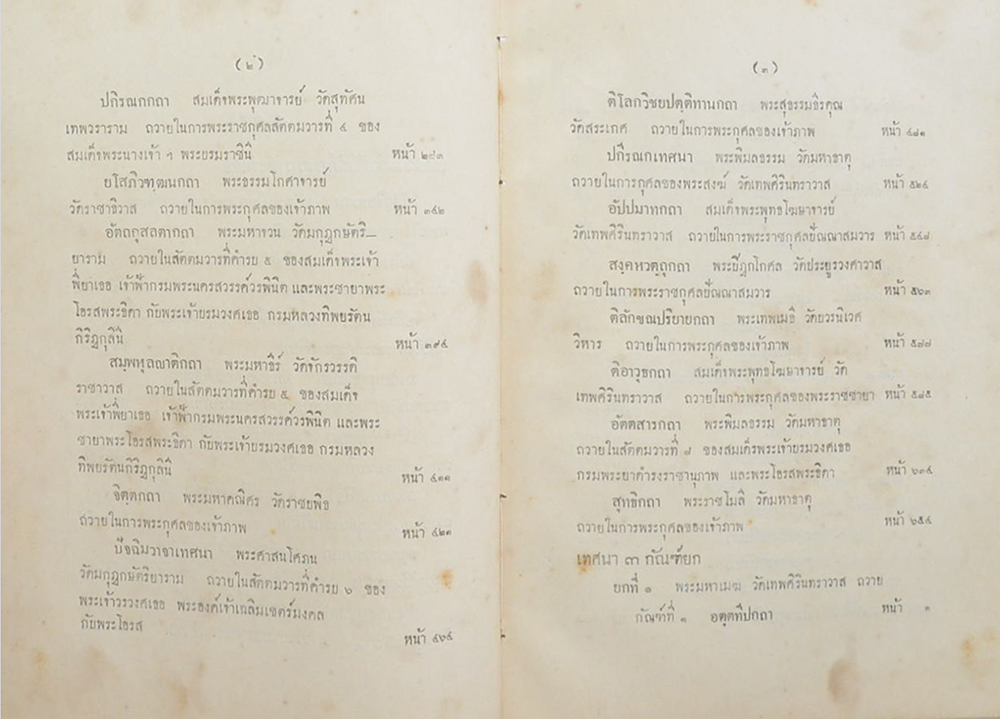 (๒)
ปกิรณกกถา สมเด็จพระพุฒาจารย์ วัดสุทัศน
เทพวราราม ถวายในการพระราชกุศลสัตตมวารที่ ๔ ของ
สมเด็จพระนางเจ้า ฯ พระบรมราชินี หน้า ๒๘๓
ยโสภิวฑฺฒนกถา พระธรรมโกศาจารย์
วัดราชาธิวาส ถวายในการพระกุศลของเจ้าภาพ หน้า ๓๔๒
อัตถกุสลตากถา พระมหาจวน วัดมกุฎกษัตริ—
ยาราม ถวายในสัตตมวารที่คำรบ ๕ ของสมเด็จพระเจ้า
พี่ยาเธอ เจ้าฟ้ากรมพระนครสวรรค์วรพินิต และพระชายาพระ
โอรสพระธิดา กับพระเจ้าบรมวงศเธอ กรมหลวงทิพยรัตน
กิริฏกุลินี หน้า ๓๙๔
สมฺพหุลญาติกถา พระมหาธีร์ วัดจักรวรรดิ
ราชาวาส ถวายในสัตตมวารที่คำรบ ๕ ของสมเด็จ
พระเจ้าพี่ยาเธอ เจ้าฟ้ากรมพระนครสวรรค์วรพินิต และพระ
ชายาพระโอรสพระธิดา กับพระเจ้าบรมวงศเธอ กรมหลวง
ทิพยรัตนกิริฏกุลินี หน้า ๔๑๑
จิตฺตกถา พระมหาคณิศร วัดราชบพิธ
ถวายในการพระกุศลของเจ้าภาพ หน้า ๔๒๑
ปัจฉิมวาจาเทศนา พระศาสนโศภน
วัดมกุฏกษัตริยาราม ถวายในสัตตมวารที่คำรบ ๖ ของ
พระเจ้าวรวงศเธอ พระองค์เจ้าเฉลิมเขตร์มงคล
กับพระโอรส หน้า ๔๖๔
(๓)
ติโลกวิชยปตฺติทานกถา พระสุธรรมธีรคุณ
วัดสระเกศ ถวายในการพระกุศลของเจ้าภาพ หน้า ๔๘๑
ปกิรณกเทศนา พระพิมลธรรม วัดมหาธาตุ
ถวายในการกุศลของพระสงฆ์ วัดเทพศิรินทราวาส หน้า ๕๒๔
อัปปมาทกถา สมเด็จพระพุทธโฆษาจารย์
วัดเทพศิรินทราวาส ถวายในการพระราชกุศลปัณณาสมวาร หน้า ๕๔๘
สงฺคหวตฺถุกถา พระปิฎกโกศล วัดประยูรวงศาวาส
ถวายในการพระราชกุศลปัณณาสมวาร หน้า ๕๖๓
ติลักขณปริยายกถา พระเทพเมธี วัดบวรนิเวศ
วิหาร ถวายในการพระกุศลของเจ้าภาพ หน้า ๕๗๗
ติอาวุธกถา สมเด็จพระพุทธโฆษาจารย์ วัด
เทพศิรินทราวาส ถวายในการพระกุศลของพระราชชายา หน้า ๕๘๕
อัตตสารกถา พระพิมลธรรม วัดมหาธาตุ
ถวายในสัตตมวารที่ ๗ ของสมเด็จพระเจ้าบรมวงศเธอ
กรมพระยาดำรงราชานุภาพ และพระโอรสพระธิดา หน้า ๖๓๔
สุทธิกถา พระราชโมลี วัดมหาธาตุ
ถวายในการพระกุศลของเจ้าภาพ หน้า ๖๕๔
เทศนา ๓ กัณฑ์ยก
ยกที่ ๑ พระมหาเมฆ วัดเทพศิรินทราวาส ถวาย
กัณฑ์ที่ ๑ อตฺตทีปกถา หน้า ๑